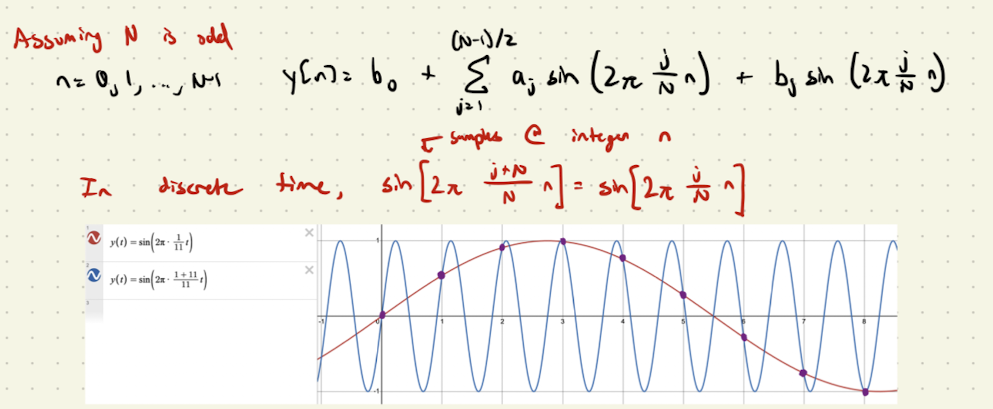 Assuming N is odd
n = 0, 1, ..., N-1   y[n] = b₀ + Σ_{j=1}^{(N-1)/2} a_j sin (2π j/N n) + b_j sin (2π j/N n)
samples @ integer n
In discrete time, sin[2π (j+N)/N n] = sin[2π j/N n]
y(t) = sin(2π · 1/11 t)
y(t) = sin(2π · (1+11)/11 t)
1
-1 0 1 2 3 4 5 6 7 8
-1